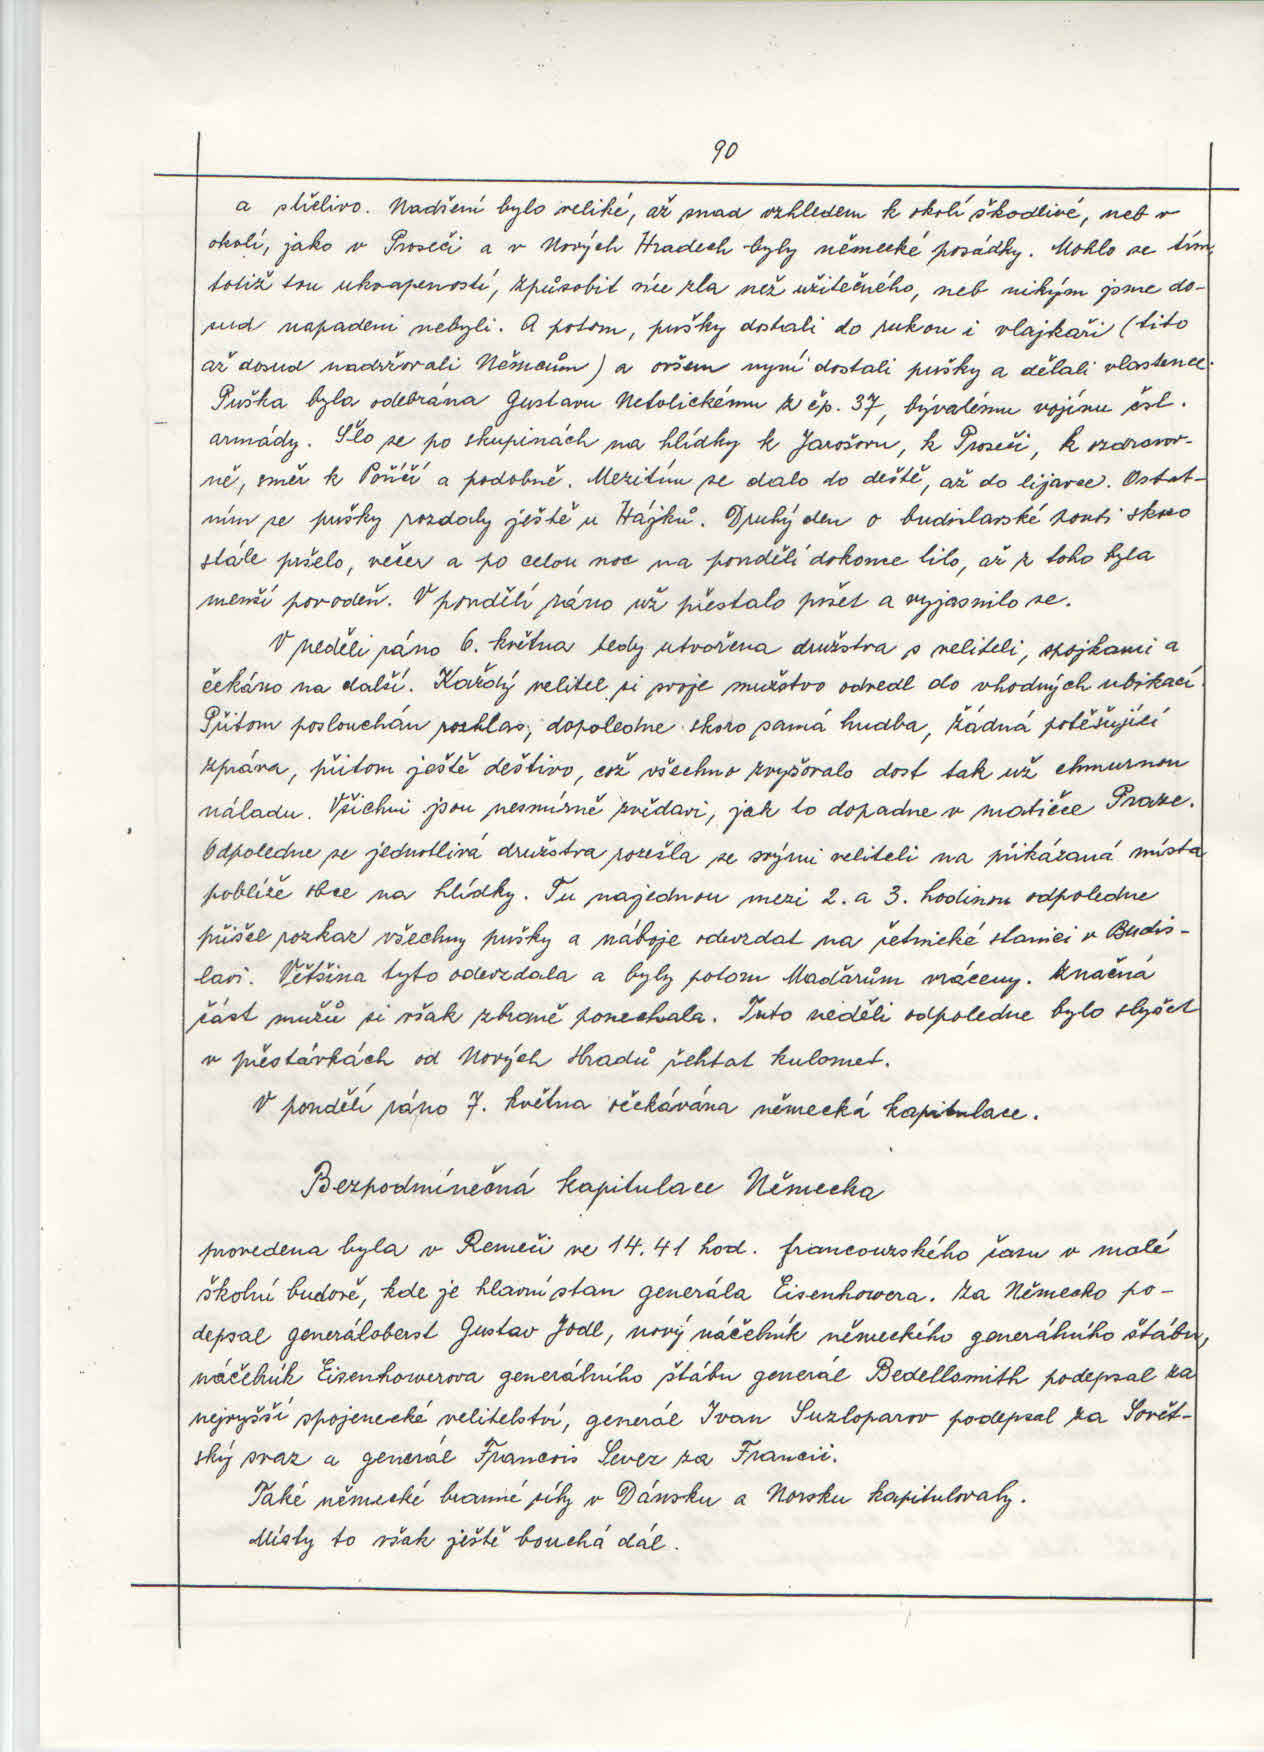 90
a střelivo. Nadšení bylo veliké, až snad vzhledem k okolí škodlivé, neb v
okolí, jako v Proseči a v Nových Hradech byly německé posádky. Mohlo se tím,
totiž tou ukvapeností, způsobit více zla než užitečného, neb nikým jsme do-
sud napadeni nebyli. A potom, pušky dostali do rukou i vlajkaři (tito
až dosud nadržovali Němcům) a ovšem nyní dostali pušky a dělali vlastence.
Puška byla odebrána Gustavu Netolickému z čp. 37, bývalému vojínu čsl.
armády. Šlo se po skupinách na hlídky k Jarošovu, k Proseči, k ozdravov-
ně, směr k Poříčí a podobně. Mezitím se dalo do deště, až do lijavce. Ostat-
ním se pušky rozdaly ještě u Hájků. Druhý den o budislavské pouti skoro
stále pršelo, večer a po celou noc na pondělí dokonce lilo, až z toho byla
menší povodeň. V pondělí ráno už přestalo pršet a vyjasnilo se.
V neděli ráno 6. května tedy utvořena družstva s veliteli, spojkami a
čekáno na další. Každý velitel si svoje mužstvo odvedl do vhodných ubikací.
Přitom poslouchán rozhlas, dopoledne skoro samá hudba, žádná potěšující
zpráva, přitom ještě deštivo, což všechno zvyšovalo dost tak už chmurnou
náladu. Všichni jsou nesmírně zvědavi, jak to dopadne v matičce Praze.
Odpoledne se jednotlivá družstva rozešla se svými veliteli na přikázaná místa
poblíže obce na hlídky. Tu najednou mezi 2. a 3. hodinou odpoledne
přišel rozkaz všechny pušky a náboje odevzdat na četnické stanici v Budis-
lavi. Většina tyto odevzdala a byly potom Maďarům vráceny. Značná
část mužů si však zbraně ponechala. Tuto neděli odpoledne bylo slyšet
v přestávkách od Nových Hradů řehtat kulomet.
V pondělí ráno 7. května očekávána německá kapitulace.
Bezpodmínečná kapitulace Německa
provedena byla v Remeši ve 14.41 hod. francouzského času v malé
školní budově, kde je hlavní stan generála Eisenhowera. Za Německo po-
depsal generáloberst Gustav Jodl, nový náčelník německého generálního štábu,
náčelník Eisenhowerova generálního štábu generál Bedellsmith podepsal za
nejvyšší spojenecké velitelství, generál Ivan Suzloparov podepsal za Sovět-
ský svaz a generál Francois Sevez za Francii.
Také německé branné síly v Dánsku a Norsku kapitulovaly.
Místy to však ještě bouchá dál.